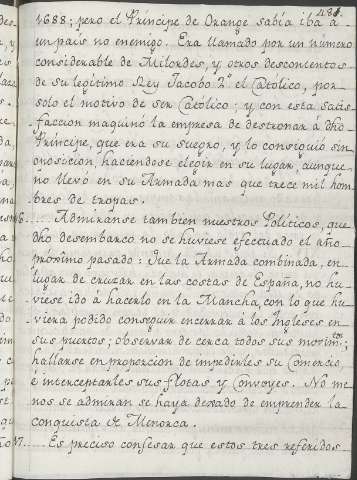 481.
1688; pero el Príncipe de Orange sabía iba á
un país no enemigo. Era llamado por un numero
considerable de Milordes, y otros descontentos
de su legítimo Rey Jacobo 2º el Católico, por
solo el motivo de ser Católico; y con esta satis
faccion maquinó la empresa de destronar á dho
Príncipe, que era su suegro, y lo consiguió sin
oposicion, haciendose elegir en su lugar, aunque
no llevó en su Armada mas que trece mil hom
bres de tropas.
6..... Admiranse tambien nuestros Políticos, que
dho desembarco no se huviese efectuado el año
proximo pasado: Que la Armada combinada, en
lugar de cruzar en las costas de España, no hu
viese ido á hacerlo en la Mancha, con lo que hu
viera podido conseguir encerrar á los Ingleses en
sus puertos; observar de cerca todos sus movim.tos;
hallarse en proporcion de impedirles su Comercio,
é interceptarles sus flotas y Convoyes. No me
nos se admiran se haya dexado de emprender la
conquista de Menorca.
7..... Es preciso confesar que estos tres referidos